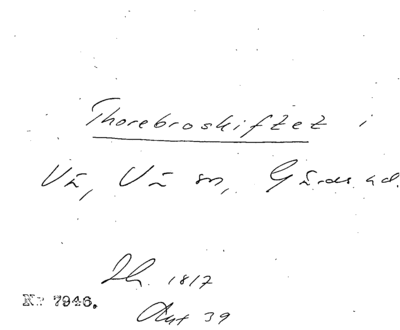 Thorebroskiftet i
Vä, Vä sn, Gärds hd.
Jh. 1817
Akt 39
No 7946.